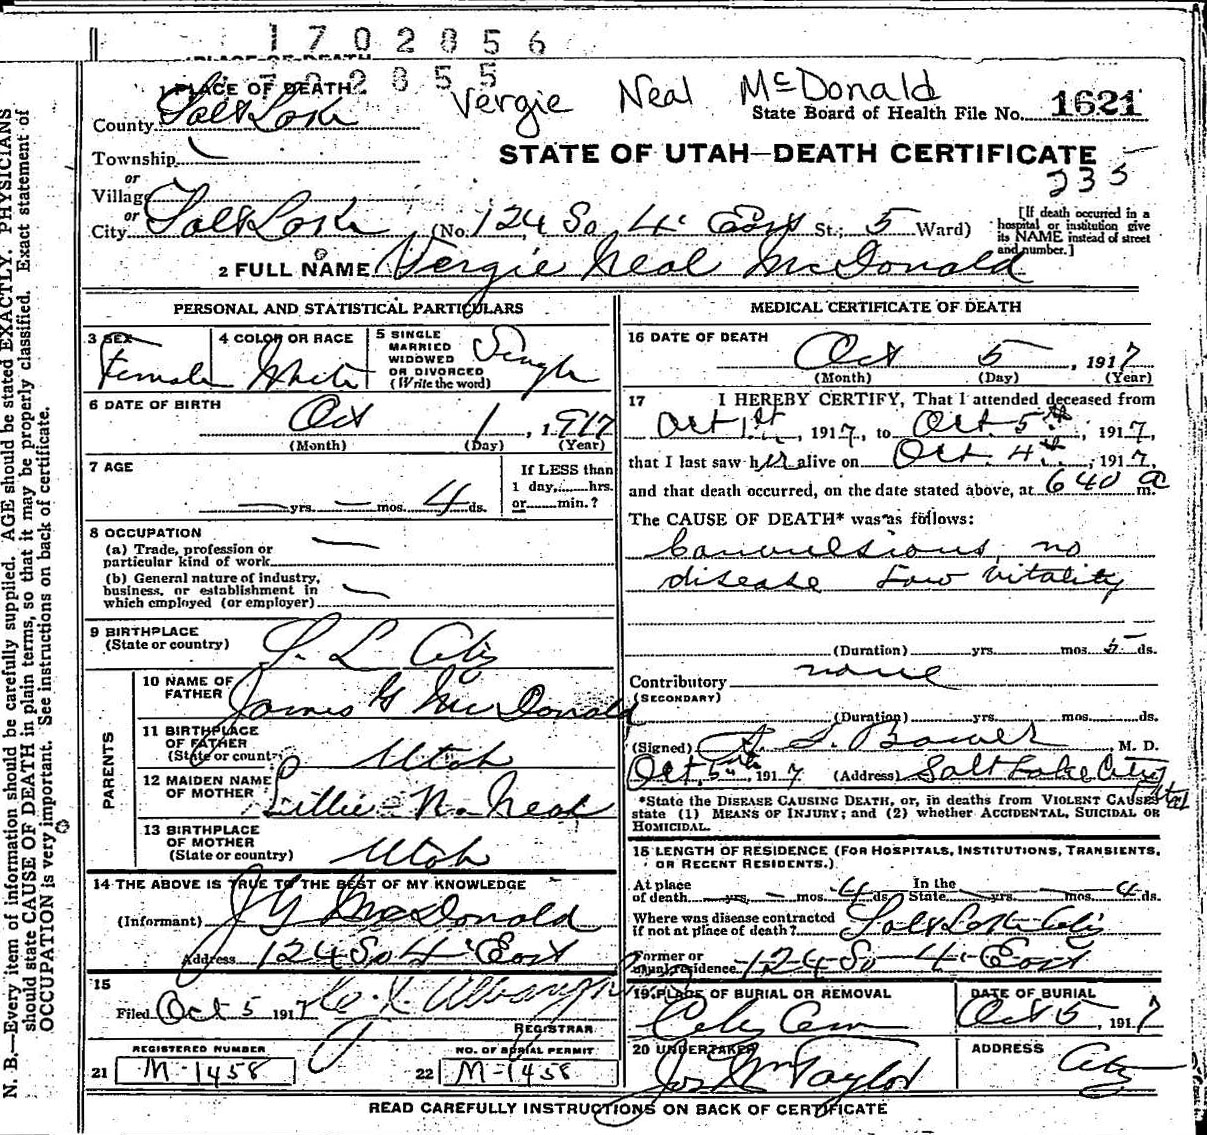 1702856
PLACE OF DEATH
1702855
1 PLACE OF DEATH
Vergie Neal McDonald
County Salt Lake
State Board of Health File No. 1621
Township —
STATE OF UTAH—DEATH CERTIFICATE
or
235
Village
or
City Salt Lake (No. 124 So 4' East St.; 5 Ward)
[If death occurred in a hospital or institution give its NAME instead of street and number.]
2 FULL NAME Vergie Neal McDonald
PERSONAL AND STATISTICAL PARTICULARS
3 SEX Female
4 COLOR OR RACE White
5 SINGLE MARRIED WIDOWED OR DIVORCED (Write the word) Single
6 DATE OF BIRTH
Oct 1, 1917
(Month) (Day) (Year)
7 AGE
— yrs. — mos. 4 ds.
If LESS than
1 day, ......hrs.
or......min.?
8 OCCUPATION
(a) Trade, profession or
particular kind of work —
(b) General nature of industry,
business, or establishment in
which employed (or employer) —
9 BIRTHPLACE
(State or country) S. L. City
PARENTS
10 NAME OF FATHER James G McDonald
11 BIRTHPLACE OF FATHER (State or country) Utah
12 MAIDEN NAME OF MOTHER Lillie N. Neal
13 BIRTHPLACE OF MOTHER (State or country) Utah
14 THE ABOVE IS TRUE TO THE BEST OF MY KNOWLEDGE
(Informant) J G McDonald
Address 124 So 4' East
15
Filed Oct 5 1917
REGISTRAR
REGISTERED NUMBER
21 M-1458
NO. OF BURIAL PERMIT
22 M-1458
MEDICAL CERTIFICATE OF DEATH
16 DATE OF DEATH
Oct 5, 1917
(Month) (Day) (Year)
17 I HEREBY CERTIFY, That I attended deceased from
Oct 1st, 1917, to Oct 5th, 1917,
that I last saw her alive on Oct. 4th, 1917,
and that death occurred, on the date stated above, at 640 a m.
The CAUSE OF DEATH* was as follows:
Convulsions, no
disease Low Vitality
(Duration) yrs. mos. 5 ds.
Contributory none
(SECONDARY)
(Duration) yrs. mos. ds.
(Signed) Bower, M. D.
Oct 5th, 1917 (Address) Salt Lake City Utah
*State the DISEASE CAUSING DEATH, or, in deaths from VIOLENT CAUSES
state (1) MEANS OF INJURY; and (2) whether ACCIDENTAL, SUICIDAL OR
HOMICIDAL.
18 LENGTH OF RESIDENCE (FOR HOSPITALS, INSTITUTIONS, TRANSIENTS,
OR RECENT RESIDENTS.)
At place
of death — yrs. — mos. 4 ds. In the State — yrs. — mos. 4 ds.
Where was disease contracted
if not at place of death? Salt Lake City
Former or
usual residence 124 So 4' East
19 PLACE OF BURIAL OR REMOVAL
City Cem
DATE OF BURIAL
Oct 5, 1917
20 UNDERTAKER
Jos Wm Taylor
ADDRESS
City
READ CAREFULLY INSTRUCTIONS ON BACK OF CERTIFICATE
N. B.—Every item of information should be carefully supplied. AGE should be stated EXACTLY. PHYSICIANS
should state CAUSE OF DEATH in plain terms, so that it may be properly classified. Exact statement of
OCCUPATION is very important. See instructions on back of certificate.